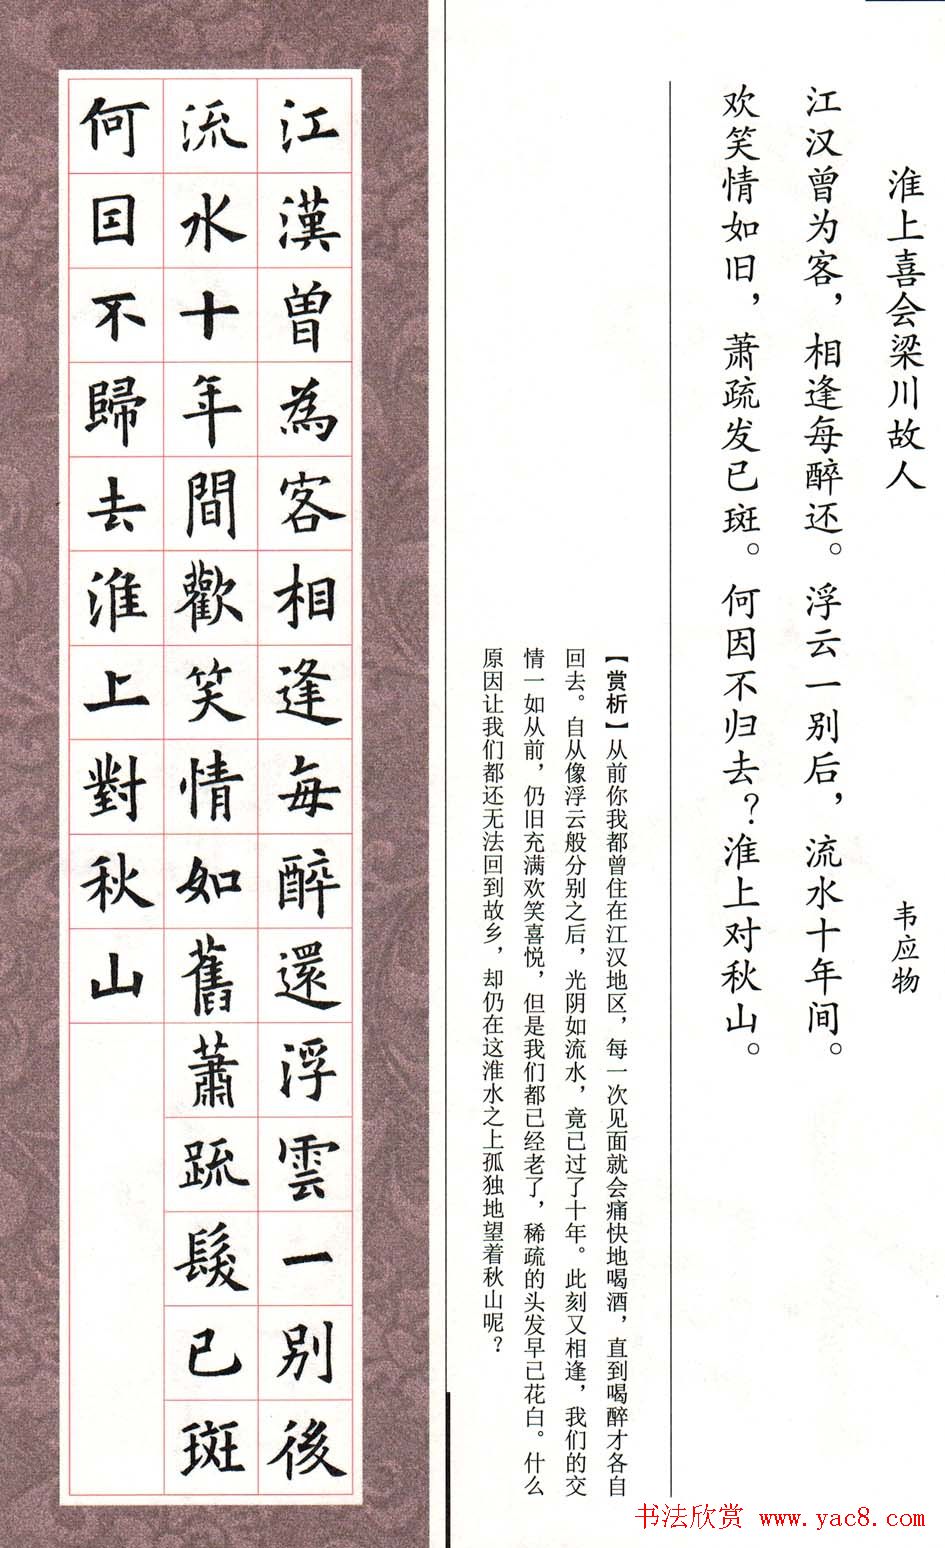 淮上喜会梁川故人
韦应物
江汉曾为客，相逢每醉还。浮云一别后，流水十年间。
欢笑情如旧，萧疏发已斑。何因不归去？淮上对秋山。
【赏析】从前你我都曾住在江汉地区，每一次见面就会痛快地喝酒，直到喝醉才各自
回去。自从像浮云般分别之后，光阴如流水，竟已过了十年。此刻又相逢，我们的交
情一如从前，仍旧充满欢笑喜悦，但是我们都已经老了，稀疏的头发早已花白。什么
原因让我们都还无法回到故乡，却仍在这淮水之上孤独地望着秋山呢？
江漢曾為客相逢每醉還浮雲一別後
流水十年間歡笑情如舊蕭疏髮已斑
何因不歸去淮上對秋山
书法欣赏 www.yac8.com